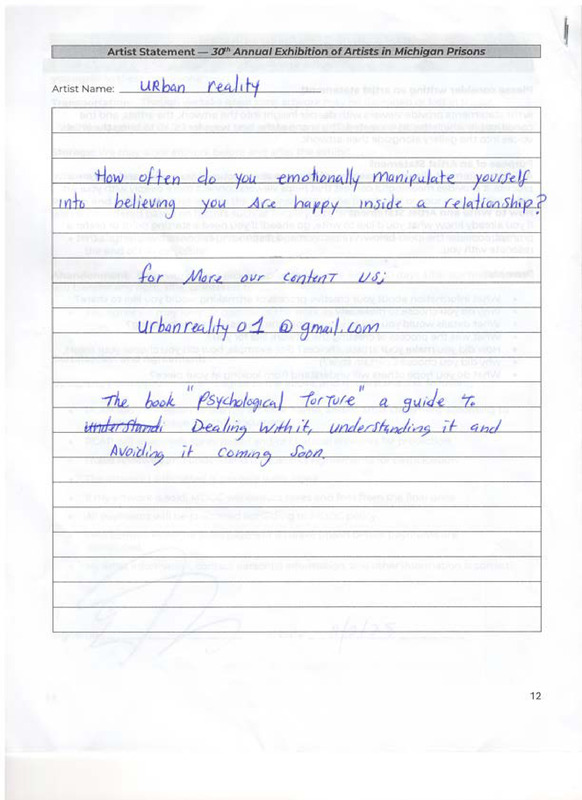 Artist Statement — 30th Annual Exhibition of Artists in Michigan Prisons
Artist Name: urban reality
How often do you emotionally manipulate yourself
into believing you are happy inside a relationship?
for More our content us;
urbanreality01@gmail.com
The book "Psychological Torture" a guide To
understandi Dealing with it, understanding it and
Avoiding it coming Soon.
12